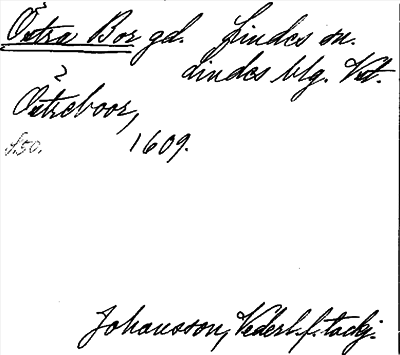 Östra Bor gd. Lindes sn.
Lindes blg. Vst.
Östreboor,
f. 50. 1609.
Johansson, Nederl. f. tackj.